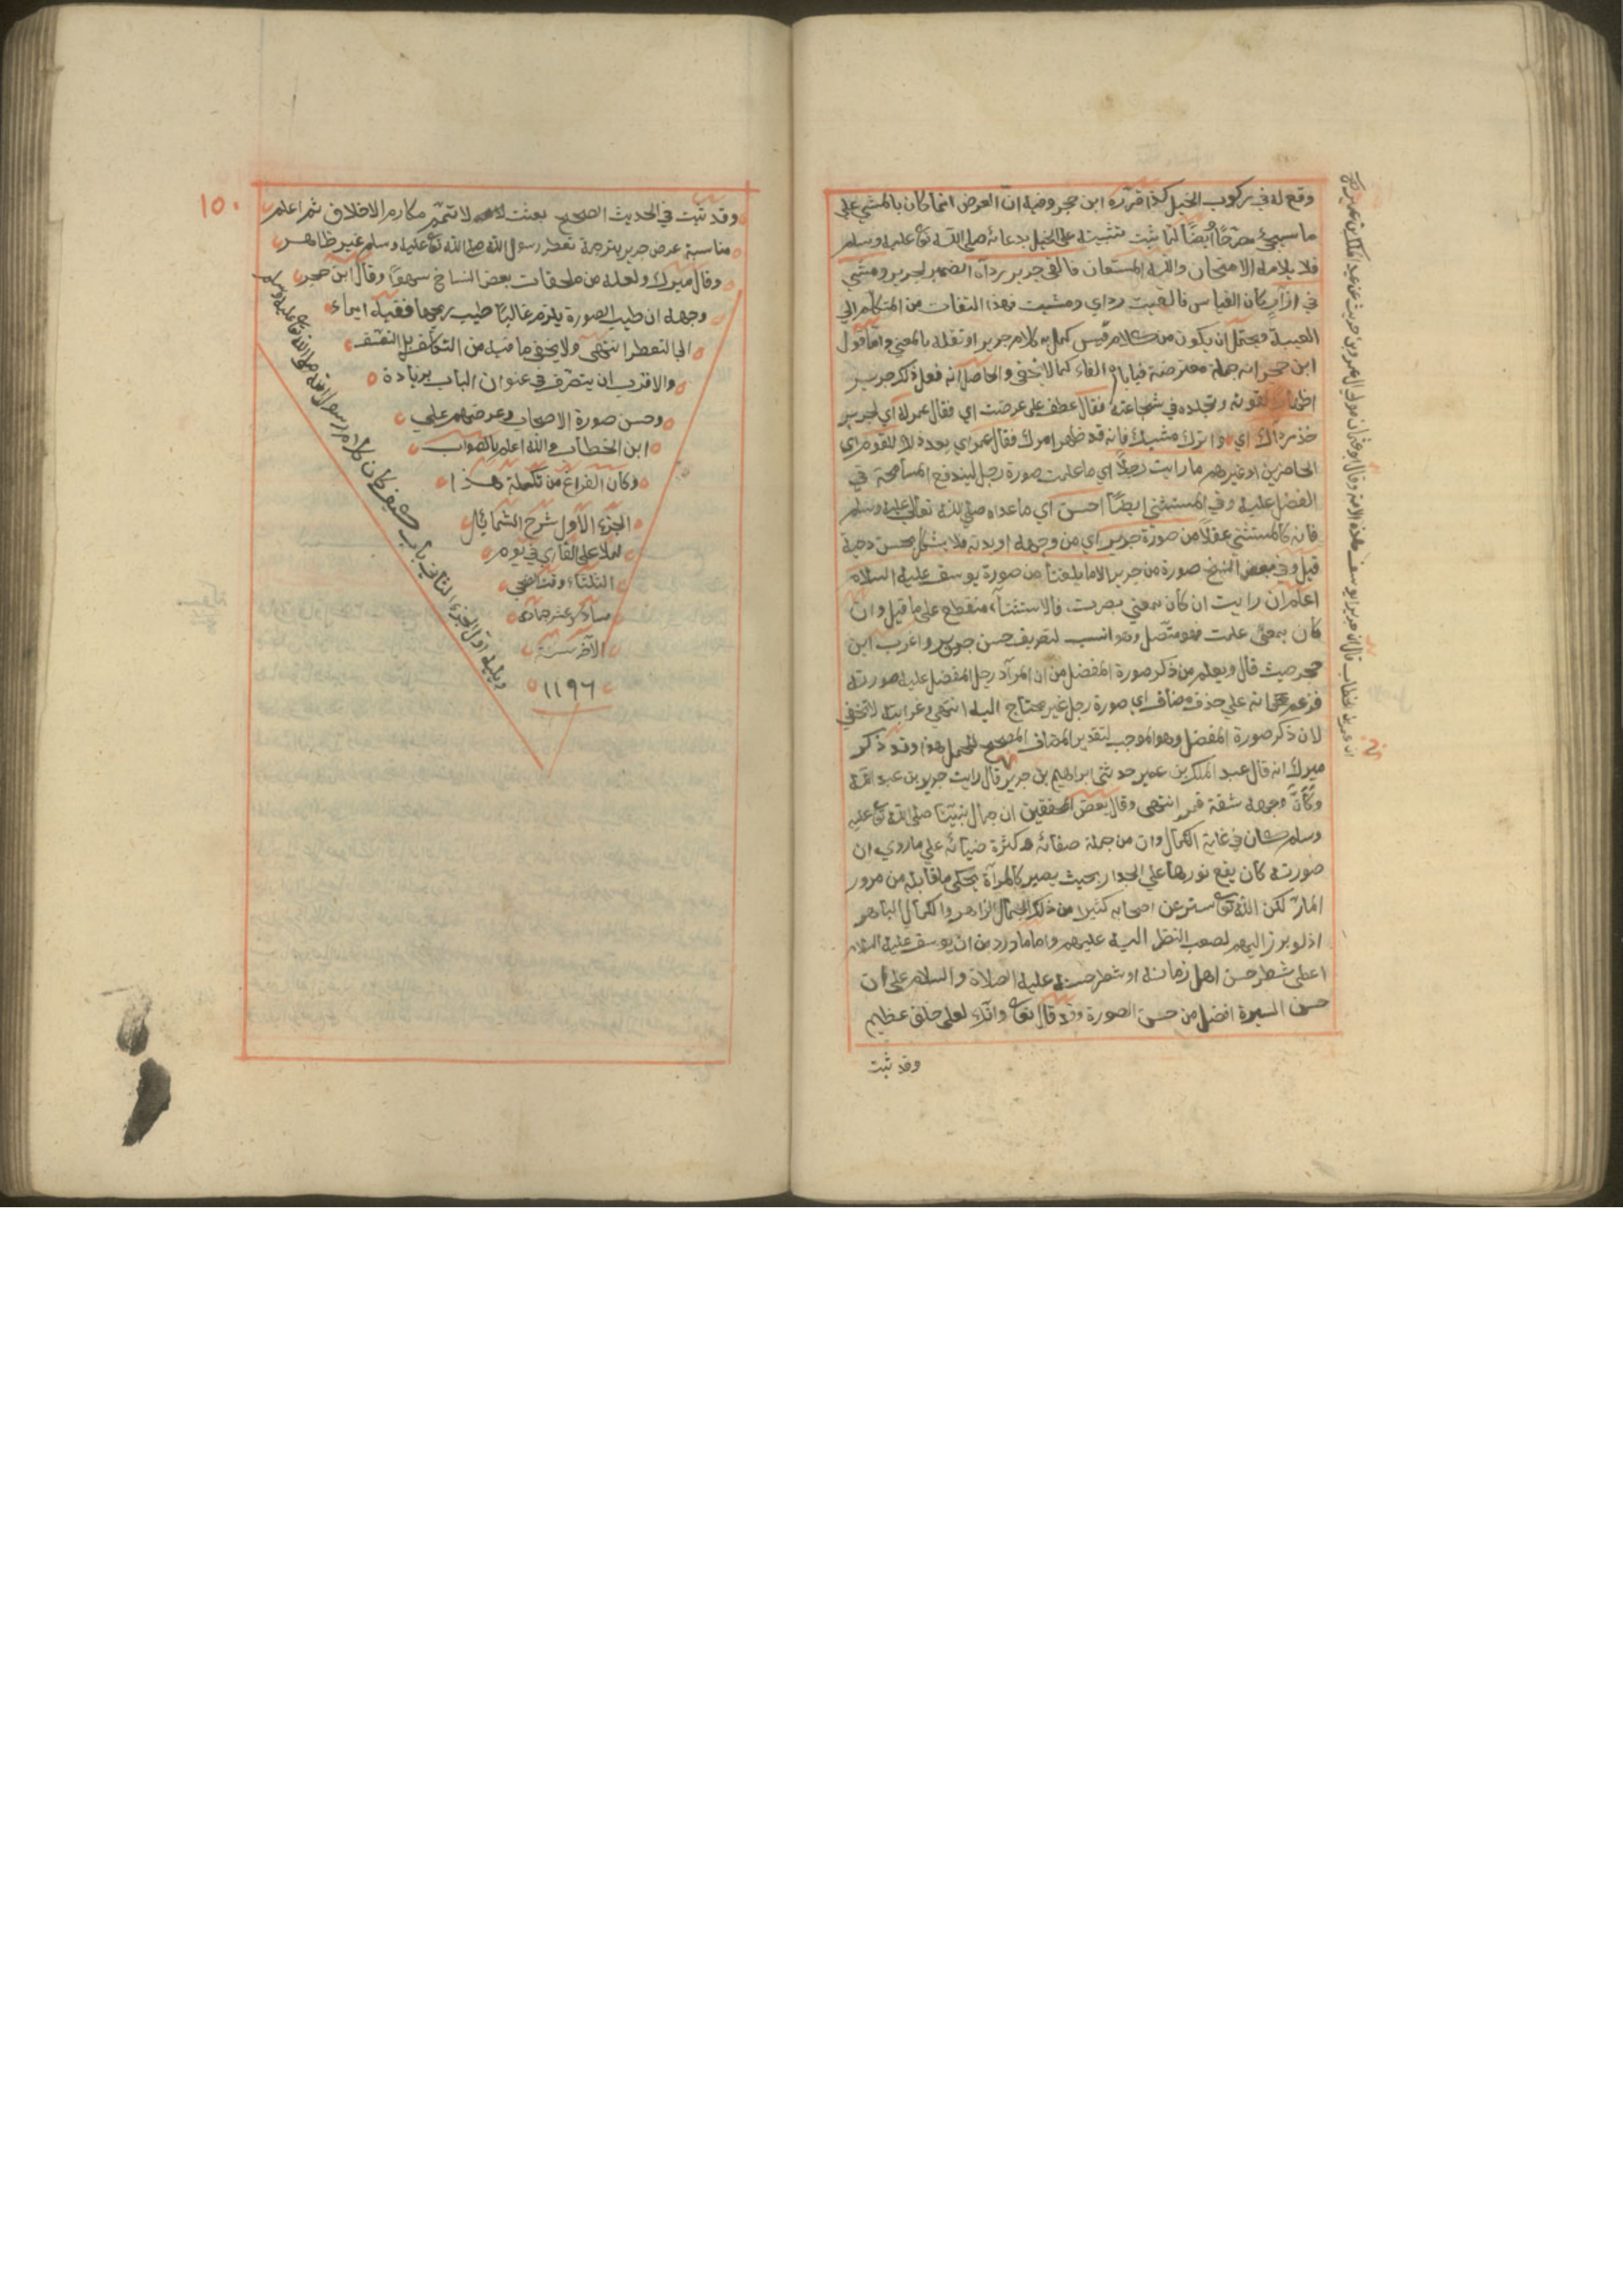 وقع له في ركوب الخيل كذا قرره ابن حجر وفيه ان العرض انما كان بالمشي علي
ما سيجئ مصرحًا أيضًا لما ثبت تثبيته على الخيل بدعائه صلى الله تع عليه وسلم
فلا يلامه الامتحان والله المستعان فالقى جرير رداه الضمير لجرير ومشي
في ازار كان القياس فالقيت رداي ومشيت فهذا التفات من المتكلم الي
الغيبة ويحتمل ان يكون من كلام قيس كمل به كلام جرير او نقله بالمعني واما قول
ابن حجر انه جملة معترضة فياباه الفاء كما لا يخفى والحاصل انه فعل ذكر جرير
لقوته وتجلده في شجاعته فقال عطف على عرضت اي فقال عمر له اي لجرير
خذ رداك اي واترك مشيك فانه قد ظهر امرك فقال عمر اي بعده للقوم اي
الحاضرين او غيرهم ما رايت رجلاً اي ما علمت صورة رجل ليندفع المسامحة في
الفضل عليه وفي المستثنى ايضًا احسن اي ما عداه صلى الله تعالى عليه وسلم
فانه كالمستثنى عقلاً من صورة جرير اي من وجهه او بدنه فلا يشكل بحسن دحية
قبل وفي بعض النسخ صورة من جرير الا ما بلغنا من صورة يوسف عليه السلام
اعلم ان رايت ان كان بمعني بصرت، فالاستثناء منقطع على ما قيل وان
كان بمعنى علمت فهو متصل وهو انسب لتعريف حسن جرير واغرب ابن
حجر حيث قال ويعلم من ذكر صورة المفضل من ان المراد رجل المفضل عليه صورته
فزعم انه علي حذف مضاف اي صورة رجل غير محتاج اليه انتهى وغرابته لا تخفي
لان ذكر صورة المفضل وهو الموجب لتقدير المضاف المصحح للحمل هذا وقد ذكر
ميرك انه قال عبد الملك بن عمير حدثني ابراهيم بن جرير قال رايت جرير بن عبد الله
وكأن وجهه شقة قمر انتهى وقال بعض المحققين ان جمال نبينا صلى الله تع عليه
وسلم كان في غاية الكمال وان من جملة صفاته كثرة ضيائه علي ما روي ان
صورته كان يقع نورها على الجدار بحيث يصير كالمرآة يحكى ما قابله من مرور
المار لكن الله تع ستر عن اصحابه كثيرا من ذلك الجمال الزاهر والكمال الباهر
اذ لو برز اليهم لصعب النظر اليه عليهم واما ما ورد من ان يوسف عليه السلام
اعطى شطر حسن اهل زمانه او شطر حسنه عليه الصلاة والسلام على ان
حسن السيرة افضل من حسن الصورة وقد قال تع وانك لعلى خلق عظيم
وقد ثبت
ان عمر بن الخطاب قال ان جريرا يوسف هذه الامة وقال ابو عثمان مولى ال عمرو بن حريث عن عبد الملك بن عمير
١٥٠
وقد ثبت في الحديث الصحيح بعثت لاتمم مكارم الاخلاق ثم اعلم
مناسبة عرض جرير بترجمة تعطر رسول الله صلى الله تع عليه وسلم غير ظاهر
وقال ميرك ولعله من ملحقات بعض النساخ سهوًا وقال ابن حجر
وجهه ان طيب الصورة يلزم غالبا طيب ريحها ففيه ايماء
الى التعطر انتهى ولا يخفى ما فيه من التكلف بل التعسف
والاقرب ان يتصرف في عنوان الباب بزيادة
وحسن صورة الاصحاب وعرضهم علي
ابن الخطاب والله اعلم بالصواب
وكان الفراغ من تكملة هذا
الجزء الأول شرح الشمائل
لملا على القاري في يوم
الثلثاء وقت الضحي
سادس عشر جمادى
الآخر سنة
١١٩٦
ويليه اول الجزء الثاني باب كيف كان كلام رسول الله صلى الله تع عليه وسلم